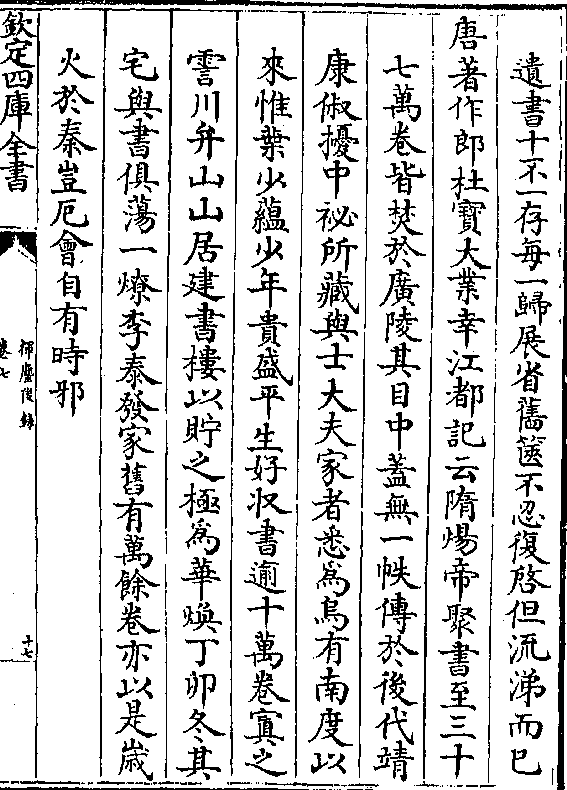 遺書十不一存每一歸展省舊篋不忍復啓但流涕而已
唐著作郎杜寶大業幸江都記云隋煬帝聚書至三十
七萬卷皆焚於廣陵其目中蓋無一帙傳於後代靖
康俶擾中祕所藏與士大夫家者悉為烏有南度以
來惟葉少蘊少年貴盛平生好収書逾十萬卷寘之
霅川弁山山居建書樓以貯之極為華煥丁卯冬其
宅與書俱蕩一燎李泰發家舊有萬餘卷亦以是歲
火於秦豈厄會自有時邪
欽定四庫全書
揮麈後錄
卷七
十七